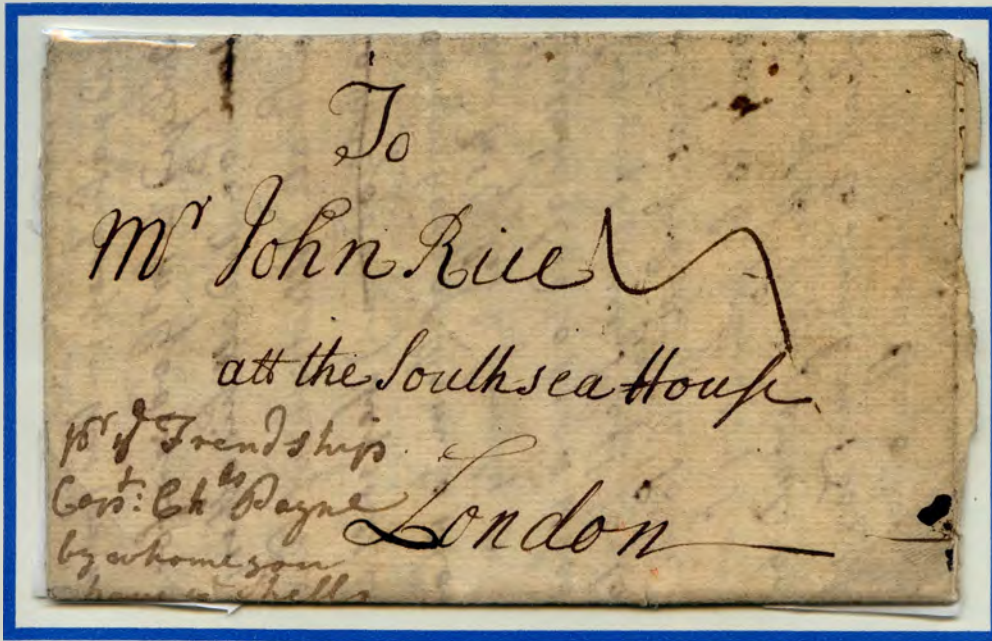 To
Mr John Rice
att the Southsea House
London
pr ye Frendship
Capt: Chas Payne
by whome you
have shells